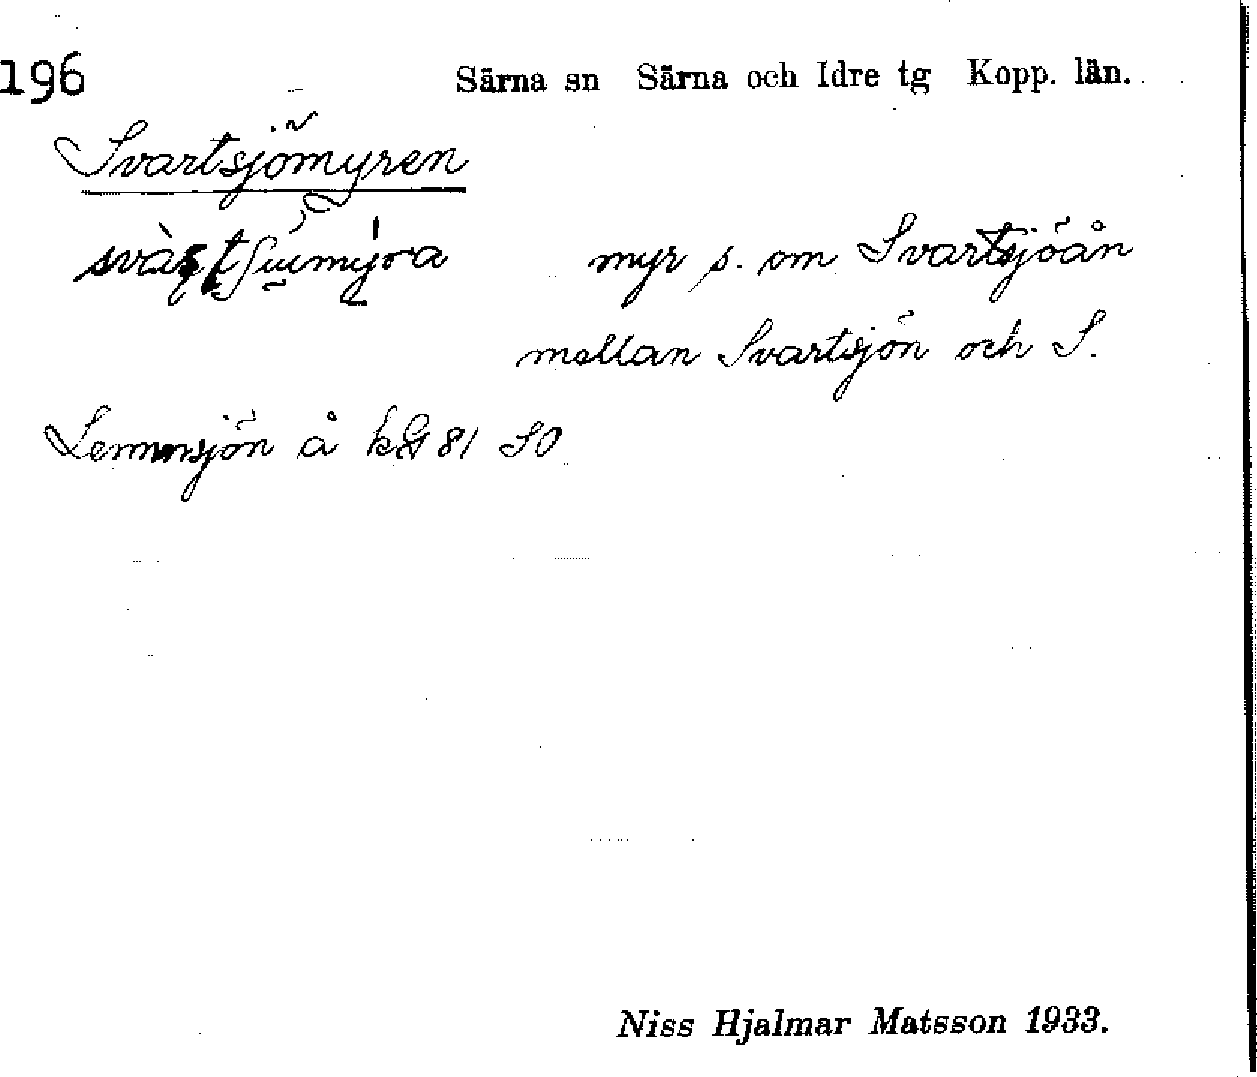 196
Särna sn Särna och Idre tg Kopp. län.
Svartsjömyren
myr s. om Svartsjöån
mellan Svartsjön och S.
Lemmsjön å kG 81 SO
Niss Hjalmar Matsson 1933.